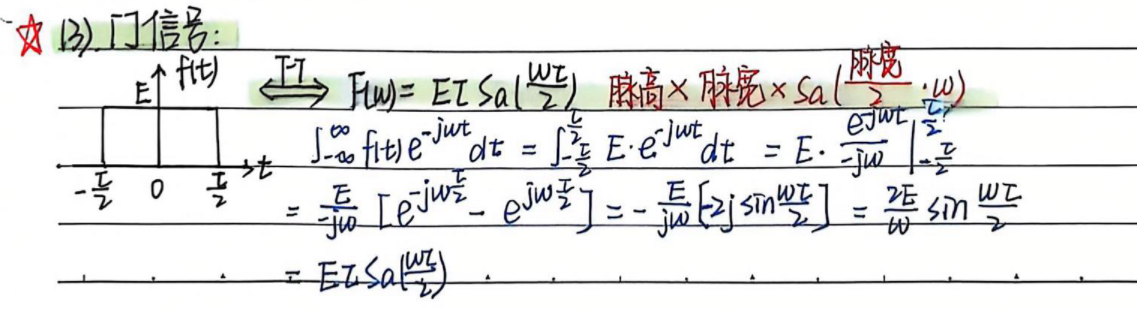 ☆ (3). 门信号:
E f(t) FT ⟺ F(ω) = EτSa(ωτ/2) 脉高×脉宽×Sa(脉宽/2 ·ω)
-τ/2 0 τ/2 t ∫_{-∞}^{∞} f(t)e^{-jωt}dt = ∫_{-τ/2}^{τ/2} E·e^{-jωt}dt = E· e^{-jωt}/-jω |_{-τ/2}^{τ/2}
= E/-jω [e^{-jωτ/2} - e^{jωτ/2}] = - E/jω [-2j sin ωτ/2] = 2E/ω sin ωτ/2
= EτSa(ωτ/2)